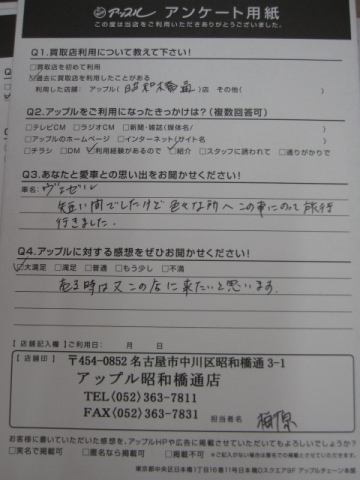 アップル アンケート用紙
この度は当店をご利用いただきありがとうございました。
Q1.買取店利用について教えて下さい!
□買取店を初めて利用
☑過去に買取店を利用したことがある
利用した店舗: アップル( 昭和橋通 )店 その他( )
Q2.アップルをご利用になったきっかけは?(複数回答可)
□テレビCM □ラジオCM □新聞・雑誌(媒体名/ )
□アップルのホームページ □インターネット(サイト名 )
□チラシ □DM ☑利用経験があるので ☑紹介 □スタッフに誘われて □通りがかりで
Q3.あなたと愛車との思い出をお聞かせください!
車名: ヴェゼル
短い間でしたけど色々な所へこの車にのって旅行
行きました.
Q4.アップルに対する感想をぜひお聞かせください!
☑大満足 □満足 □普通 □もう少し □不満
売る時は又この店に来たいと思います.
【店舗記入欄】ご利用日: 月 日
【店舗印】
〒454-0852 名古屋市中川区昭和橋通 3-1
アップル昭和橋通店
TEL(052)363-7811
FAX(052)363-7831
担当者名
お客様に書いていただいた感想を、アップルHPや広告に掲載させていただいてもよろしいでしょうか?
□実名で掲載可 □匿名なら掲載可 □掲載不可 ※ご記入がない場合は匿名での掲載とさせていただきます。
東京都中央区日本橋1丁目16番11号日本橋Dスクエア9F アップルチェーン本部